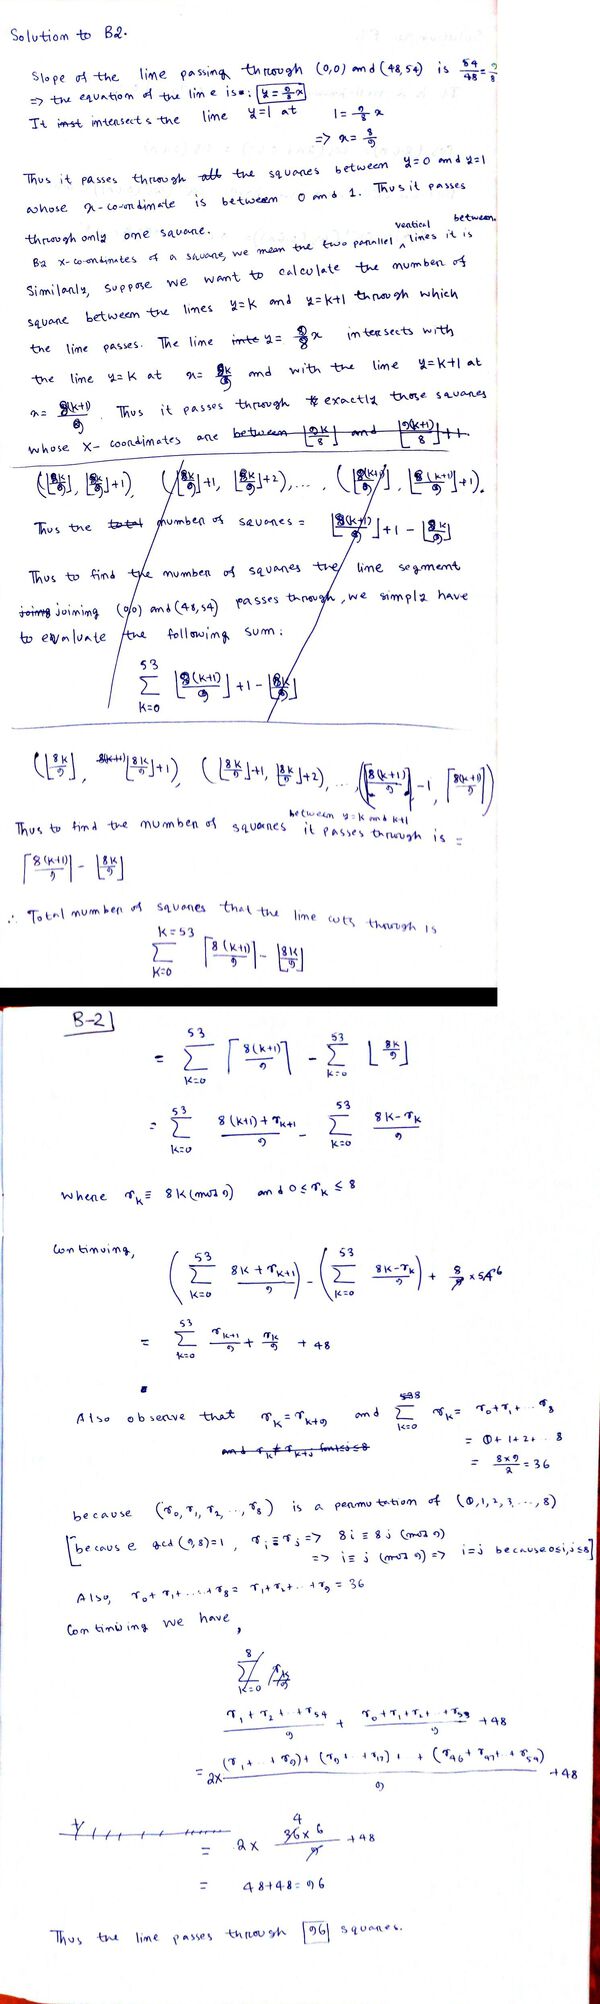 Solution to B2.
Slope of the line passing through (0,0) and (48,54) is 54/48 = 9/8
=> the equation of the line is: y = 9/8 x
It intersects the line y=1 at 1 = 9/8 x
=> x = 8/9
Thus it passes through the squares between y=0 and y=1
whose x-co-ordinate is between 0 and 1. Thus it passes
through only one square.
By x-co-ordinates of a square, we mean the two parallel vertical lines it is between.
Similarly, suppose we want to calculate the number of
square between the lines y=k and y=k+1 through which
the line passes. The line y = 9/8 x intersects with
the line y=k at x = 8k/9 and with the line y=k+1 at
x = 8(k+1)/9. Thus it passes through exactly those squares
whose X-coordinates are between ⌊9k/8⌋ and ⌊9(k+1)/8⌋+1.
(⌊8k/9⌋, ⌊8k/9⌋+1), (⌊8k/9⌋+1, ⌊8k/9⌋+2), ..., (⌊8(k+1)/9⌋, ⌊8(k+1)/9⌋+1).
Thus the total number of squares = ⌊8(k+1)/9⌋+1 - ⌊8k/9⌋
Thus to find the number of squares the line segment
joining (0,0) and (48,54) passes through, we simply have
to evaluate the following sum:
53 ∑ k=0 ⌊8(k+1)/9⌋+1-⌊8k/9⌋
(⌊8k/9⌋, ⌊8k/9⌋+1), (⌊8k/9⌋+1, ⌊8k/9⌋+2), ..., (⌈8(k+1)/9⌉-1, ⌈8(k+1)/9⌉)
Thus to find the number of squares between y=k and k+1 it passes through is =
⌈8(k+1)/9⌉ - ⌊8k/9⌋
∴ Total number of squares that the line cuts through is
k=53 ∑ k=0 ⌈8(k+1)/9⌉ - ⌊8k/9⌋
B-2
= 53 ∑ k=0 ⌈8(k+1)/9⌉ - 53 ∑ k=0 ⌊8k/9⌋
= 53 ∑ k=0 8(k+1)+r_{k+1}/9 - 53 ∑ k=0 8k-r_k/9
where r_k ≡ 8k (mod 9) and 0 ≤ r_k ≤ 8
Continuing,
(53 ∑ k=0 8k+r_{k+1}/9) - (53 ∑ k=0 8k-r_k/9) + 8/9 × 54 6
= 53 ∑ k=0 r_{k+1}/9 + r_k/9 + 48
Also observe that r_k = r_{k+9} and 8 ∑ k=0 r_k = r_0+r_1+...r_8
= 0+1+2+..8
= 8×9/2 = 36
because (r_0, r_1, r_2, .., r_8) is a permutation of (0,1,2,3,...,8)
[because gcd(9,8)=1, r_i ≡ r_j => 8i ≡ 8j (mod 9)
=> i ≡ j (mod 9) => i=j because 0≤i,j≤8]
Also, r_0+r_1+...+r_8 = r_1+r_2+..+r_9 = 36
Continuing we have,
8 ∑ k=0 r_k/9
r_1+r_2+..+r_54/9 + r_0+r_1+r_2+..+r_53/9 + 48
= 2× (r_1+..+r_9)+(r_9+..+r_17)+ +(r_46+r_47+..+r_54)/9 + 48
= 2 × 4 36×6/9 + 48
= 48+48 = 96
Thus the line passes through 96 squares.